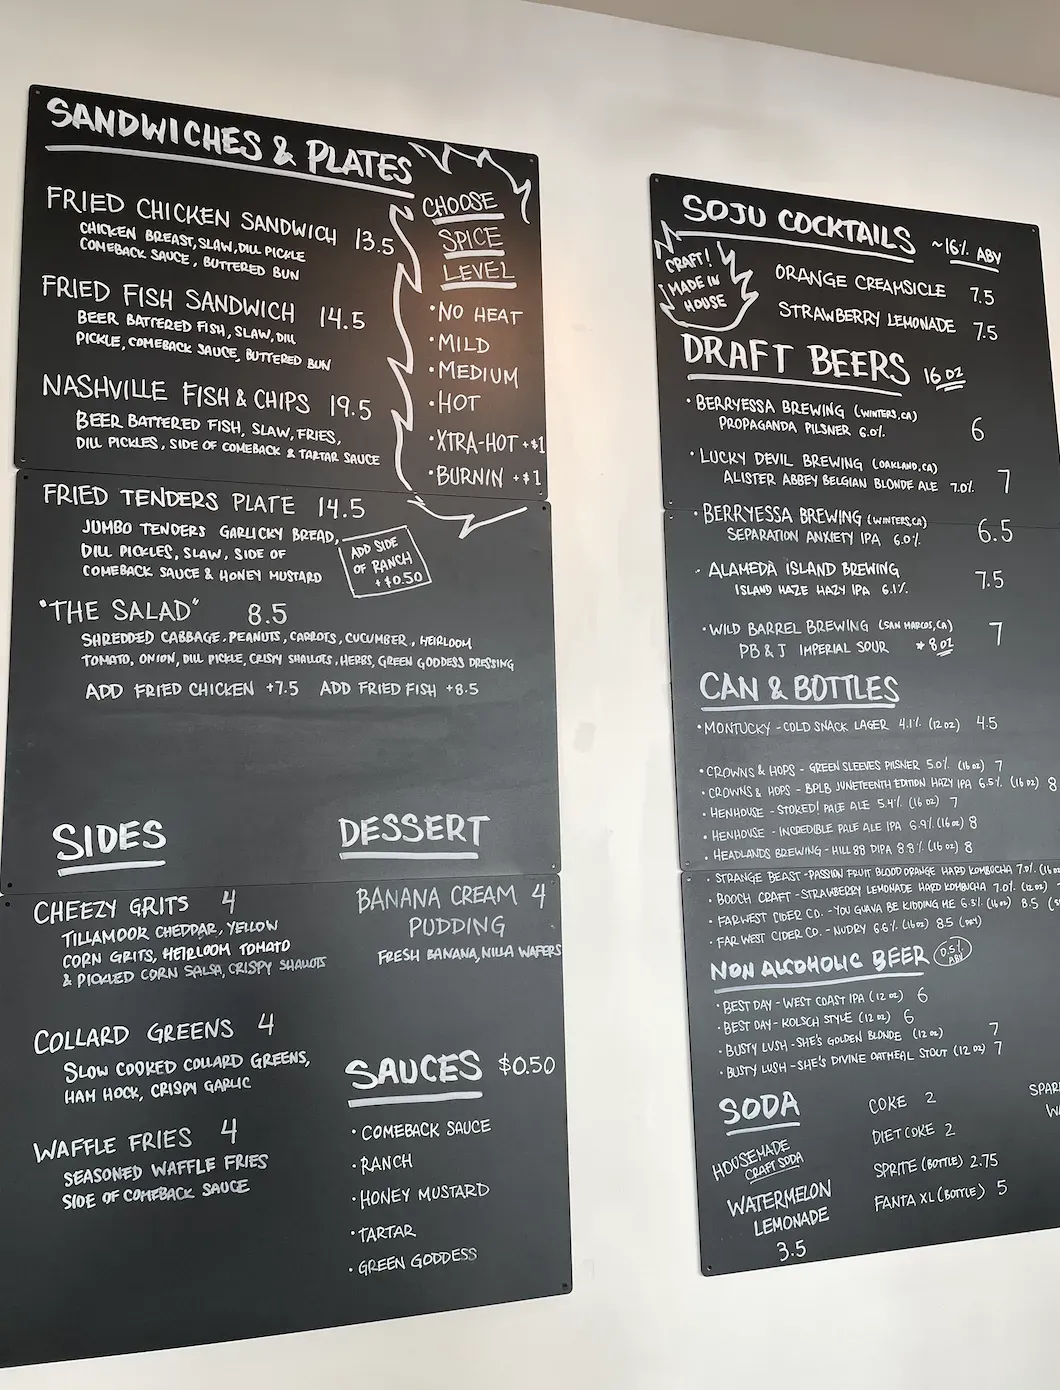 SANDWICHES & PLATES
FRIED CHICKEN SANDWICH 13.5
CHICKEN BREAST, SLAW, DILL PICKLE
COMEBACK SAUCE, BUTTERED BUN
FRIED FISH SANDWICH 14.5
BEER BATTERED FISH, SLAW, DILL
PICKLE, COMEBACK SAUCE, BUTTERED BUN
NASHVILLE FISH & CHIPS 19.5
BEER BATTERED FISH, SLAW, FRIES,
DILL PICKLES, SIDE OF COMEBACK & TARTAR SAUCE
CHOOSE
SPICE
LEVEL
• NO HEAT
• MILD
• MEDIUM
• HOT
• XTRA-HOT +$1
• BURNIN +$1
FRIED TENDERS PLATE 14.5
JUMBO TENDERS GARLICKY BREAD,
DILL PICKLES, SLAW, SIDE OF
COMEBACK SAUCE & HONEY MUSTARD
ADD SIDE
OF RANCH
+$0.50
"THE SALAD" 8.5
SHREDDED CABBAGE, PEANUTS, CARROTS, CUCUMBER, HEIRLOOM
TOMATO, ONION, DILL PICKLE, CRISPY SHALLOTS, HERBS, GREEN GODDESS DRESSING
ADD FRIED CHICKEN +7.5 ADD FRIED FISH +8.5
SIDES
CHEEZY GRITS 4
TILLAMOOK CHEDDAR, YELLOW
CORN GRITS, HEIRLOOM TOMATO
& PICKLED CORN SALSA, CRISPY SHALLOTS
COLLARD GREENS 4
SLOW COOKED COLLARD GREENS,
HAM HOCK, CRISPY GARLIC
WAFFLE FRIES 4
SEASONED WAFFLE FRIES
SIDE OF COMEBACK SAUCE
DESSERT
BANANA CREAM 4
PUDDING
FRESH BANANA, NILLA WAFERS
SAUCES $0.50
• COMEBACK SAUCE
• RANCH
• HONEY MUSTARD
• TARTAR
• GREEN GODDESS
SOJU COCKTAILS ~16% ABV
CRAFT!
MADE IN
HOUSE
ORANGE CREAMSICLE 7.5
STRAWBERRY LEMONADE 7.5
DRAFT BEERS 16 OZ
• BERRYESSA BREWING (WINTERS, CA)
PROPAGANDA PILSNER 6.0% 6
• LUCKY DEVIL BREWING (OAKLAND, CA)
ALISTER ABBEY BELGIAN BLONDE ALE 7.0% 7
• BERRYESSA BREWING (WINTERS, CA)
SEPARATION ANXIETY IPA 6.0% 6.5
• ALAMEDA ISLAND BREWING
ISLAND HAZE HAZY IPA 6.1% 7.5
• WILD BARREL BREWING (SAN MARCOS, CA)
PB & J IMPERIAL SOUR * 8 OZ 7
CAN & BOTTLES
• MONTUCKY - COLD SNACK LAGER 4.1% (12 OZ) 4.5
• CROWNS & HOPS - GREEN SLEEVES PILSNER 5.0% (16 OZ) 7
• CROWNS & HOPS - BPLB JUNETEENTH EDITION HAZY IPA 6.5% (16 OZ) 8
• HENHOUSE - STOKED! PALE ALE 5.4% (16 OZ) 7
• HENHOUSE - INCREDIBLE PALE ALE IPA 6.9% (16 OZ) 8
• HEADLANDS BREWING - HILL 88 DIPA 8.8% (16 OZ) 8
• STRANGE BEAST - PASSION FRUIT BLOOD ORANGE HARD KOMBUCHA 7.0% (16 OZ
• BOOCH CRAFT - STRAWBERRY LEMONADE HARD KOMBUCHA 7.0% (12 OZ)
• FARWEST CIDER CO. - YOU GUAVA BE KIDDING ME 6.5% (16 OZ) 8.5
• FAR WEST CIDER CO. - NUDRY 6.6% (16 OZ) 8.5 (DRY)
NON ALCOHOLIC BEER 0.5% ABV
• BEST DAY - WEST COAST IPA (12 OZ) 6
• BEST DAY - KOLSCH STYLE (12 OZ) 6
• BUSTY LUSH - SHE'S GOLDEN BLONDE (12 OZ) 7
• BUSTY LUSH - SHE'S DIVINE OATMEAL STOUT (12 OZ) 7
SODA
HOUSEMADE
CRAFT SODA
WATERMELON
LEMONADE
3.5
COKE 2
DIET COKE 2
SPRITE (BOTTLE) 2.75
FANTA XL (BOTTLE) 5
SPAR
W